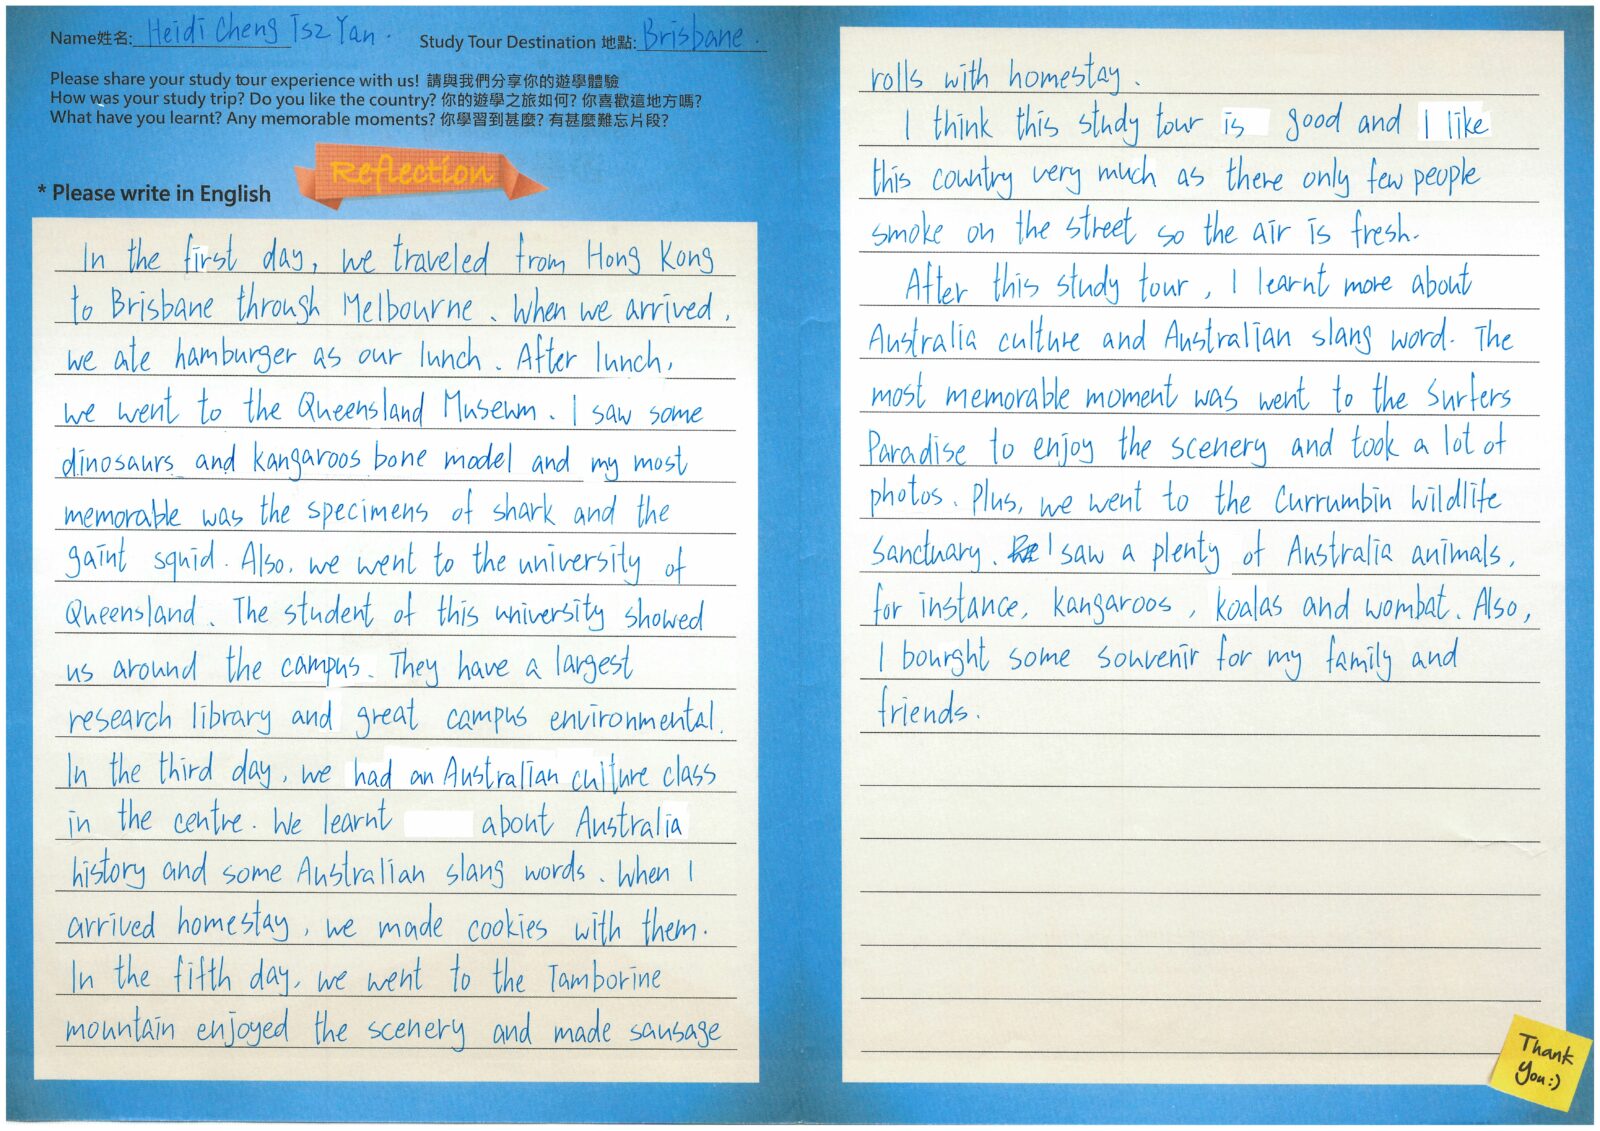 Name姓名: Heidi Cheng Tsz Yan.
Study Tour Destination 地點: Brisbane.
Please share your study tour experience with us! 請與我們分享你的遊學體驗
How was your study trip? Do you like the country? 你的遊學之旅如何? 你喜歡這地方嗎?
What have you learnt? Any memorable moments? 你學習到甚麼? 有甚麼難忘片段?
Reflection
* Please write in English
In the first day, we traveled from Hong Kong
to Brisbane through Melbourne. When we arrived,
we ate hamburger as our lunch. After lunch,
we went to the Queensland Museum. I saw some
dinosaurs and kangaroos bone model and my most
memorable was the specimens of shark and the
gaint squid. Also, we went to the university of
Queensland. The student of this university showed
us around the campus. They have a largest
research library and great campus environmental.
In the third day, we had an Australian culture class
in the centre. We learnt about Australia
history and some Australian slang words. When I
arrived homestay, we made cookies with them.
In the fifth day, we went to the Tamborine
mountain enjoyed the scenery and made sausage
rolls with homestay.
I think this study tour is good and I like
this country very much as there only few people
smoke on the street so the air is fresh.
After this study tour, I learnt more about
Australia culture and Australian slang word. The
most memorable moment was went to the Surfers
Paradise to enjoy the scenery and took a lot of
photos. Plus, we went to the Currumbin Wildlife
Sanctuary. I saw a plenty of Australia animals,
for instance, kangaroos, koalas and wombat. Also,
I bourght some souvenir for my family and
friends.
Thank
You:)